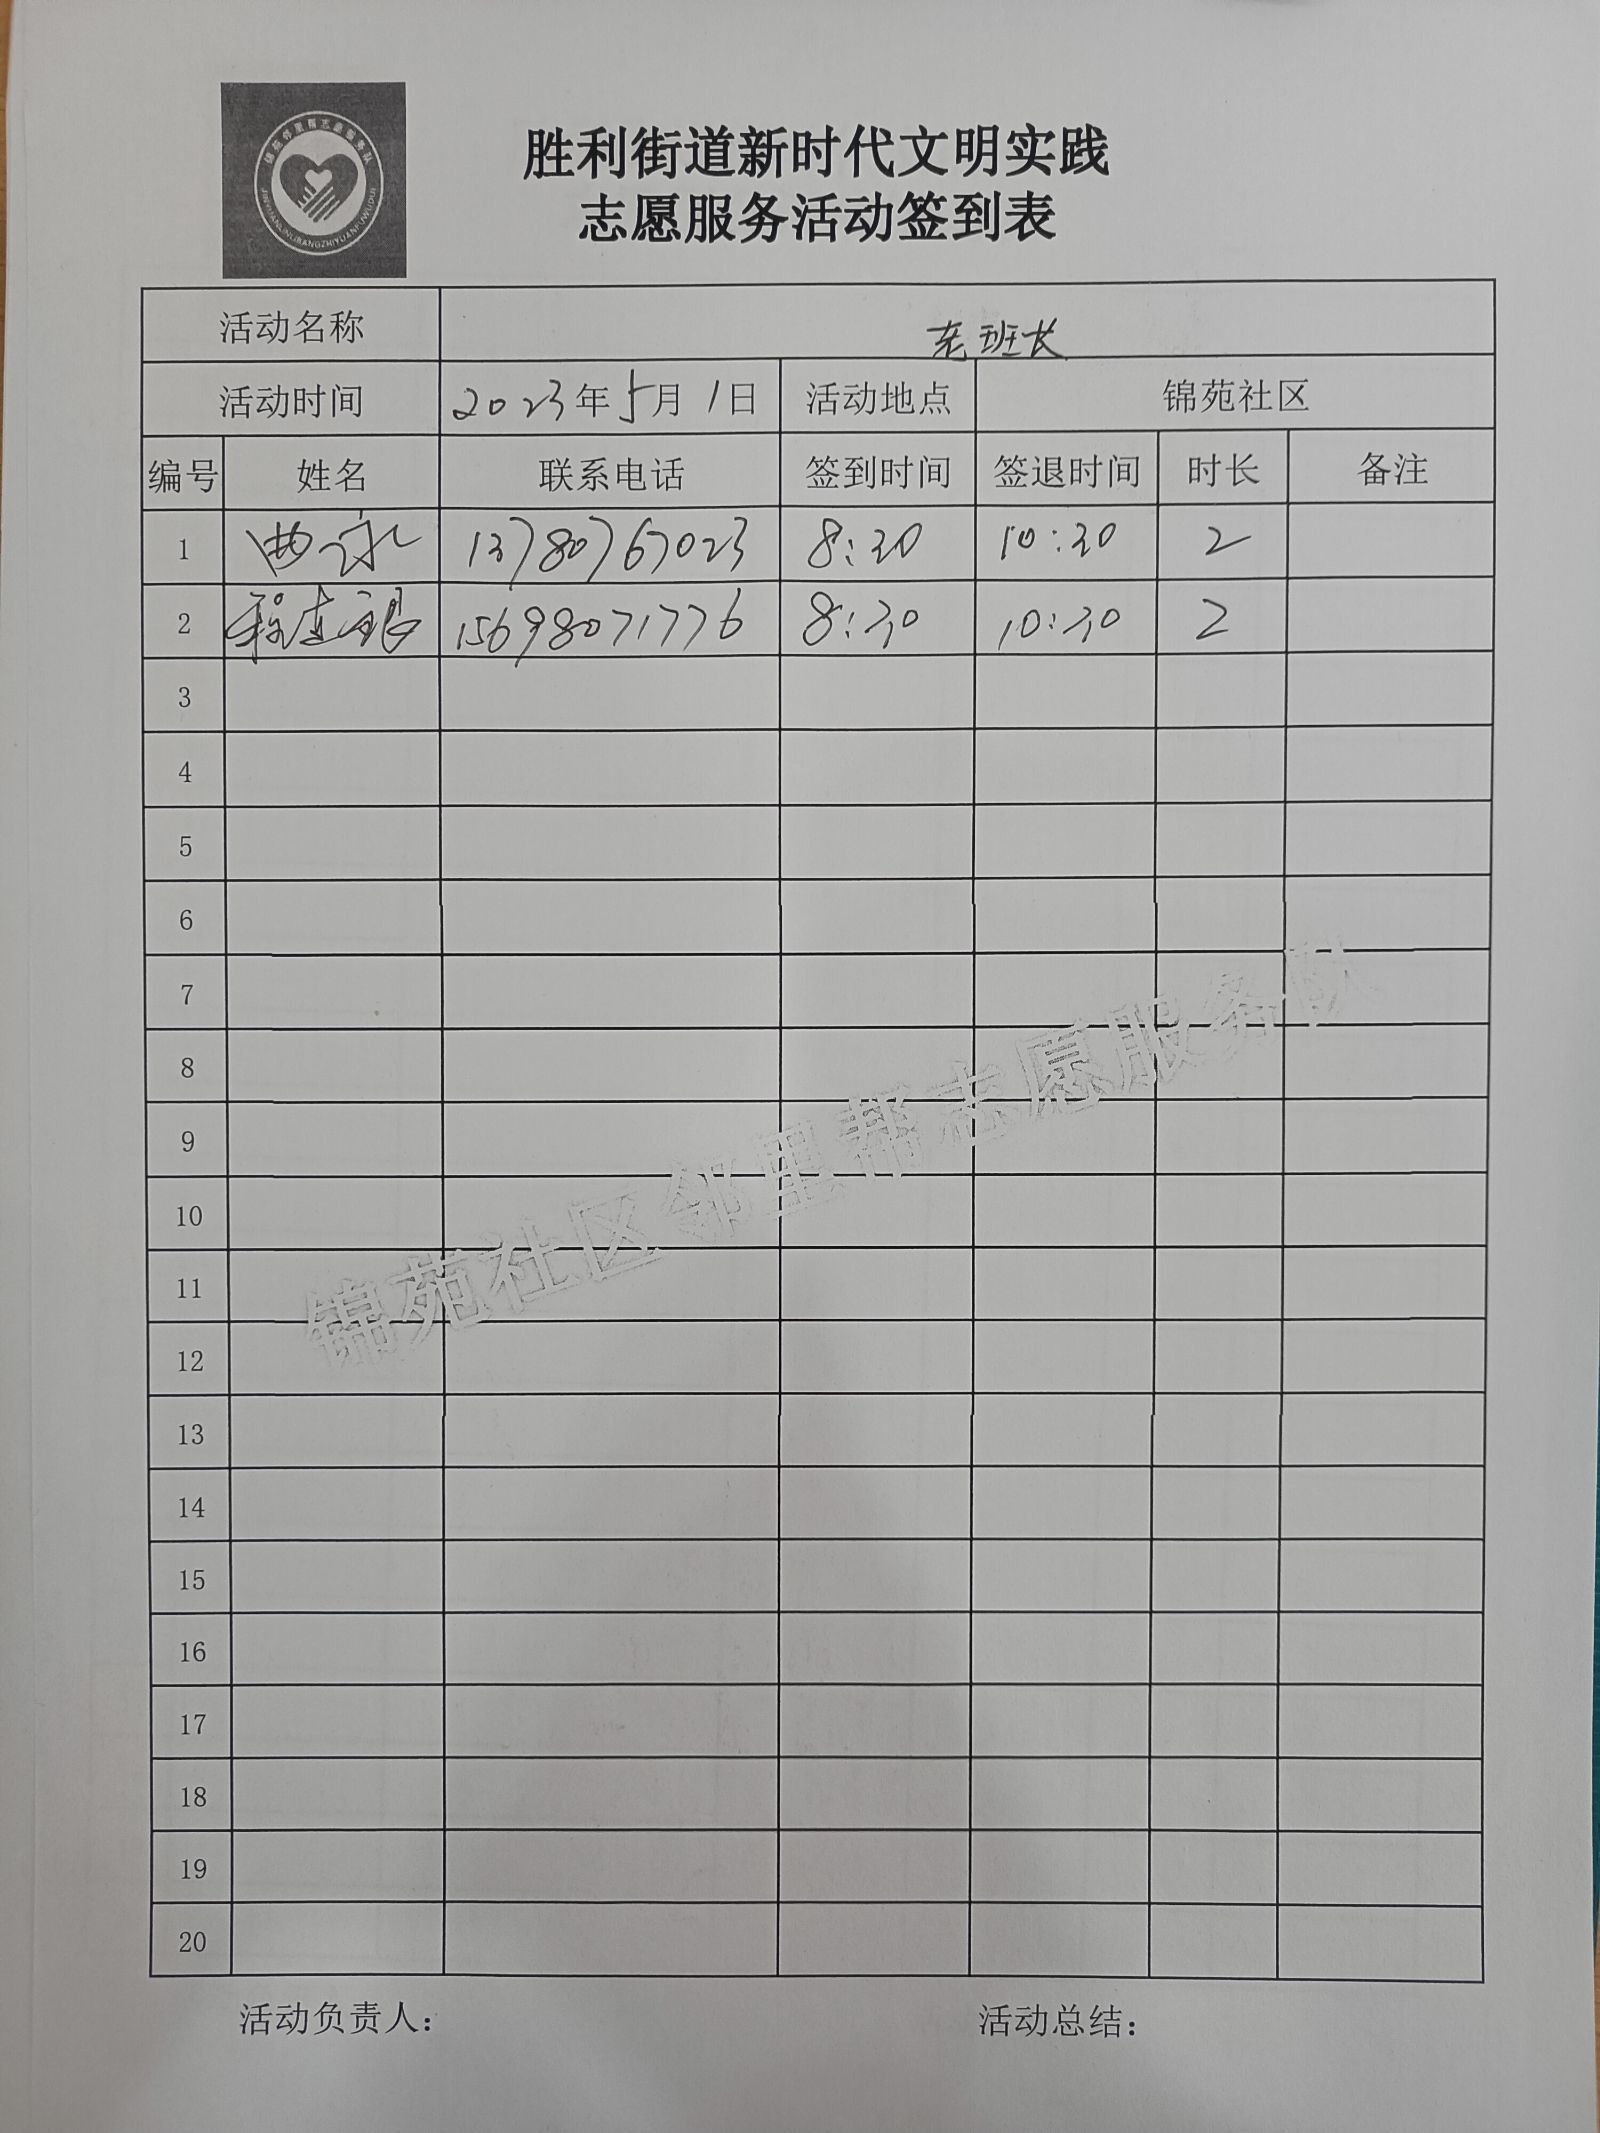 锦苑邻里帮志愿服务队
JINYUANLINLIBANGZHIYUANFUWUDUI
胜利街道新时代文明实践
志愿服务活动签到表
活动名称 老班长
活动时间 2023年5月1日 活动地点 锦苑社区
编号 姓名 联系电话 签到时间 签退时间 时长 备注
1 曲永 13780767023 8:30 10:30 2
2 15698071776 8:30 10:30 2
3
4
5
6
7
8
9
10
11
12
13
14
15
16
17
18
19
20
锦苑社区邻里帮志愿服务队
活动负责人: 活动总结: